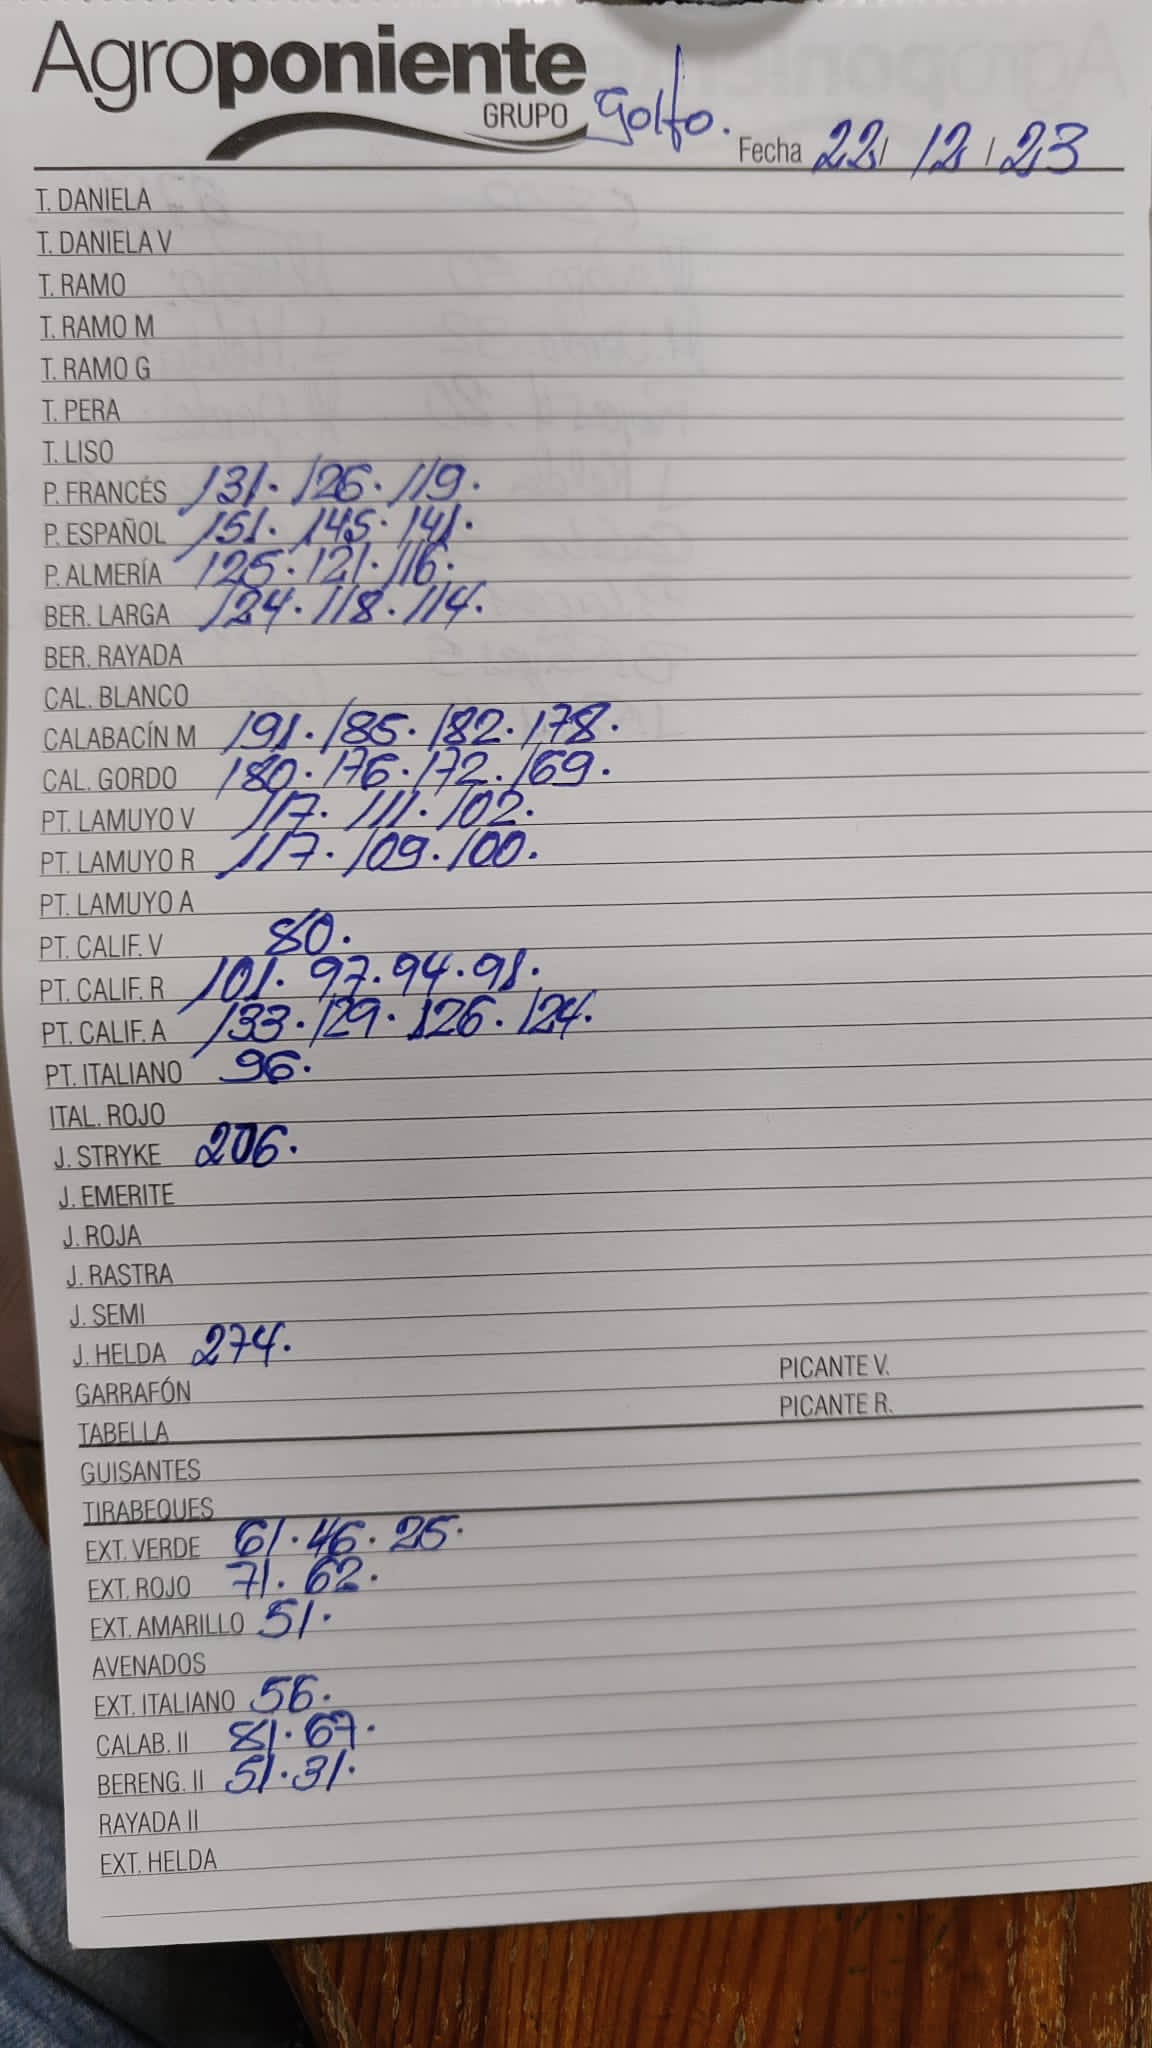 Agroponiente
GRUPO Golfo.
Fecha 22/12/23
T. DANIELA
T. DANIELA V
T. RAMO
T. RAMO M
T. RAMO G
T. PERA
T. LISO
P. FRANCÉS 131. 126. 119.
P. ESPAÑOL 151. 145. 141.
P. ALMERÍA 125. 121. 116.
BER. LARGA 124. 118. 114.
BER. RAYADA
CAL. BLANCO
CALABACÍN M 191. 185. 182. 178.
CAL. GORDO 180. 176. 172. 169.
PT. LAMUYO V 117. 111. 102.
PT. LAMUYO R 117. 109. 100.
PT. LAMUYO A
PT. CALIF. V 80.
PT. CALIF. R 101. 97. 94. 91.
PT. CALIF. A 133. 129. 126. 124.
PT. ITALIANO 96.
ITAL. ROJO
J. STRYKE 206.
J. EMERITE
J. ROJA
J. RASTRA
J. SEMI
J. HELDA 274.
GARRAFÓN PICANTE V.
TABELLA PICANTE R.
GUISANTES
TIRABEQUES
EXT. VERDE 61. 46. 25.
EXT. ROJO 71. 62.
EXT. AMARILLO 51.
AVENADOS
EXT. ITALIANO 56.
CALAB. II 81. 67.
BERENG. II 51. 31.
RAYADA II
EXT. HELDA